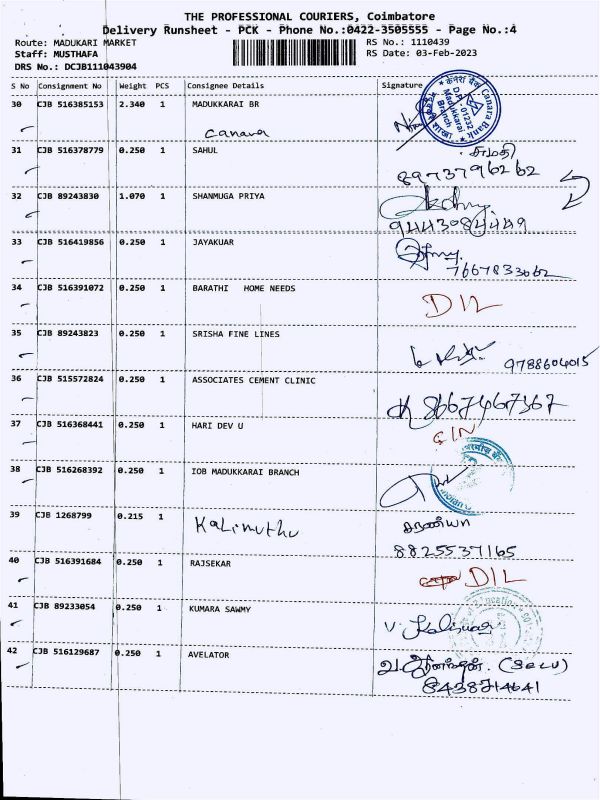 THE PROFESSIONAL COURIERS, Coimbatore
Delivery Runsheet - PCK - Phone No.:0422-3505555 - Page No.:4
Route: MADUKARI MARKET RS No.: 1110439
Staff: MUSTHAFA RS Date: 03-Feb-2023
DRS No.: DCJB111043904
S No Consignment No Weight PCS Consignee Details Signature
30 CJB 516385153 2.340 1 MADUKKARAI BR
Canara
Canara Bank
D.P.-01232
Madukkarai
Branch
31 CJB 516378779 0.250 1 SAHUL
8973796262
32 CJB 89243830 1.070 1 SHANMUGA PRIYA
9443084449
33 CJB 516419856 0.250 1 JAYAKUAR
7667833062
34 CJB 516391072 0.250 1 BARATHI HOME NEEDS DIL
35 CJB 89243823 0.250 1 SRISHA FINE LINES
9788604015
36 CJB 515572824 0.250 1 ASSOCIATES CEMENT CLINIC
8667467367
37 CJB 516368441 0.250 1 HARI DEV U
38 CJB 516268392 0.250 1 IOB MADUKKARAI BRANCH
39 CJB 1268799 0.215 1 Kalimuthu சரண்யா
8825537165
40 CJB 516391684 0.250 1 RAJSEKAR DIL
41 CJB 89233054 0.250 1 KUMARA SAWMY
42 CJB 516129687 0.250 1 AVELATOR
8438714641